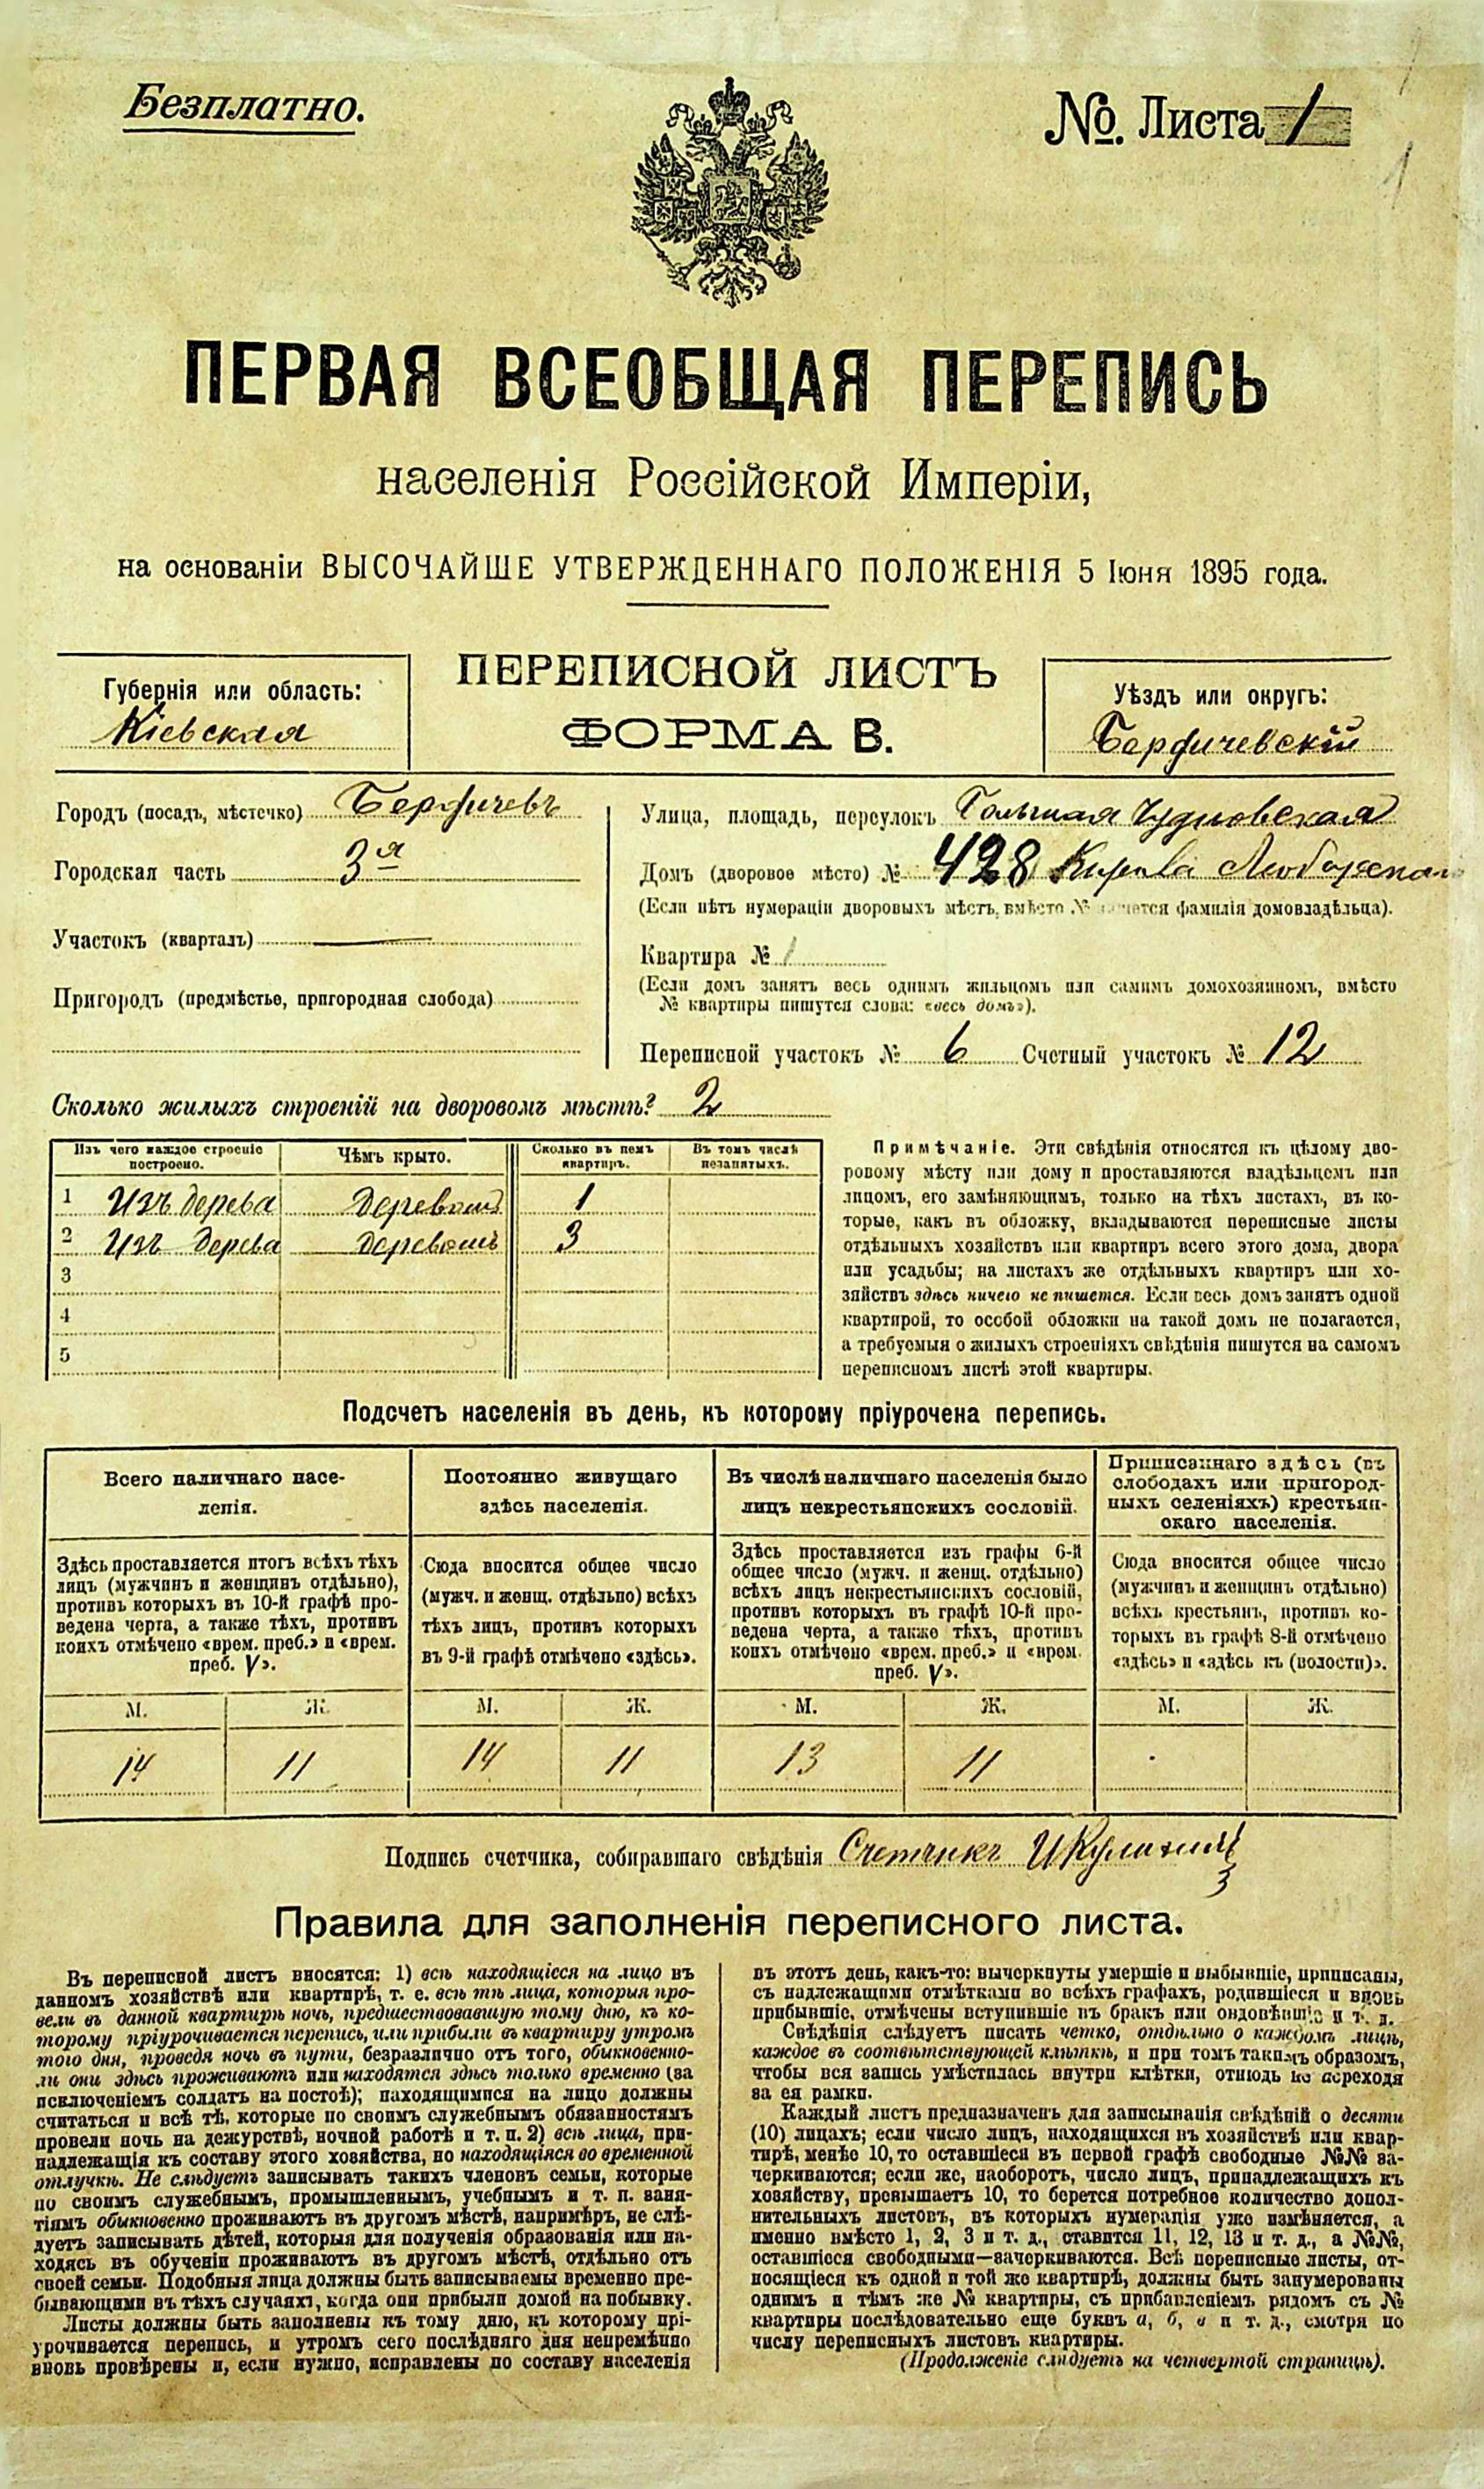 Безплатно.
№. Листа 1
ПЕРВАЯ ВСЕОБЩАЯ ПЕРЕПИСЬ
населенія Россійской Имперіи,
на основаніи ВЫСОЧАЙШЕ УТВЕРЖДЕННАГО ПОЛОЖЕНІЯ 5 Іюня 1895 года.
Губернія или область:
Кіевская
ПЕРЕПИСНОЙ ЛИСТЪ
ФОРМА В.
Уѣздъ или округъ:
Бердичевскій
Городъ (посадъ, мѣстечко) Бердичевъ
Городская часть 3я
Участокъ (кварталъ)
Пригородъ (предмѣстье, пригородная слобода)
Улица, площадь, переулокъ Чудновская
Домъ (дворовое мѣсто) № 428
(Если нѣтъ нумераціи дворовыхъ мѣстъ, вмѣсто № пишется фамилія домовладѣльца).
Квартира № 1
(Если домъ занятъ весь однимъ жильцомъ или самимъ домохозяиномъ, вмѣсто
№ квартиры пишутся слова: «весь домъ»).
Переписной участокъ № 6 Счетный участокъ № 12
Сколько жилыхъ строеній на дворовомъ мѣстѣ? 2
Изъ чего каждое строеніе построено.
Чѣмъ крыто.
Сколько въ немъ квартиръ.
Въ томъ числѣ незанятыхъ.
1 Изъ дерева Деревомъ 1
2 Изъ дерева Деревомъ 3
3
4
5
Примѣчаніе. Эти свѣдѣнія относятся къ цѣлому дво-
ровому мѣсту или дому и проставляются владѣльцемъ или
лицомъ, его замѣняющимъ, только на тѣхъ листахъ, въ ко-
торые, какъ въ обложку, вкладываются переписные листы
отдѣльныхъ хозяйствъ или квартиръ всего этого дома, двора
или усадьбы; на листахъ же отдѣльныхъ квартиръ или хо-
зяйствъ здѣсь ничего не пишется. Если весь домъ занятъ одной
квартирой, то особой обложки на такой домъ не полагается,
а требуемыя о жилыхъ строеніяхъ свѣдѣнія пишутся на самомъ
переписномъ листѣ этой квартиры.
Подсчетъ населенія въ день, къ которому пріурочена перепись.
Всего наличнаго насе-
ленія.
Здѣсь проставляется итогъ всѣхъ тѣхъ
лицъ (мужчинъ и женщинъ отдѣльно),
противъ которыхъ въ 10-й графѣ про-
ведена черта, а также тѣхъ, противъ
коихъ отмѣчено «врем. преб.» и «врем.
преб. V».
Постоянно живущаго
здѣсь населенія.
Сюда вносится общее число
(мужч. и женщ. отдѣльно) всѣхъ
тѣхъ лицъ, противъ которыхъ
въ 9-й графѣ отмѣчено «здѣсь».
Въ числѣ наличнаго населенія было
лицъ некрестьянскихъ сословій.
Здѣсь проставляется изъ графы 6-й
общее число (мужч. и женщ. отдѣльно)
всѣхъ лицъ некрестьянскихъ сословій,
противъ которыхъ въ графѣ 10-й про-
ведена черта, а также тѣхъ, противъ
коихъ отмѣчено «врем. преб.» и «врем.
преб. V».
Приписаннаго здѣсь (въ
слободахъ или пригород-
ныхъ селеніяхъ) крестьян-
скаго населенія.
Сюда вносится общее число
(мужчинъ и женщинъ отдѣльно)
всѣхъ крестьянъ, противъ ко-
торыхъ въ графѣ 8-й отмѣчено
«здѣсь» и «здѣсь къ (волости)».
М. Ж. М. Ж. М. Ж. М. Ж.
14 11 14 11 13 11
Подпись счетчика, собиравшаго свѣдѣнія Счетчикъ
Правила для заполненія переписного листа.
Въ переписной листъ вносятся: 1) всѣ находящіеся на лицо въ
данномъ хозяйствѣ или квартирѣ, т. е. всѣ тѣ лица, которыя про-
вели въ данной квартирѣ ночь, предшествовавшую тому дню, къ ко-
торому пріурочивается перепись, или прибыли въ квартиру утромъ
того дня, проведя ночь въ пути, безразлично отъ того, обыкновенно-
ли они здѣсь проживаютъ или находятся здѣсь только временно (за
исключеніемъ солдатъ на постоѣ); находящимися на лицо должны
считаться и всѣ тѣ, которые по своимъ служебнымъ обязанностямъ
провели ночь на дежурствѣ, ночной работѣ и т. п. 2) всѣ лица, при-
надлежащія къ составу этого хозяйства, но находящіяся во временной
отлучкѣ. Не слѣдуетъ записывать такихъ членовъ семьи, которые
по своимъ служебнымъ, промышленнымъ, учебнымъ и т. п. заня-
тіямъ обыкновенно проживаютъ въ другомъ мѣстѣ, напримѣръ, не слѣ-
дуетъ записывать дѣтей, которыя для полученія образованія или на-
ходясь въ обученіи проживаютъ въ другомъ мѣстѣ, отдѣльно отъ
своей семьи. Подобныя лица должны быть записываемы временно пре-
бывающими въ тѣхъ случаяхъ, когда они прибыли домой на побывку.
Листы должны быть заполнены къ тому дню, къ которому прі-
урочивается перепись, и утромъ сего послѣдняго дня непремѣнно
вновь провѣрены и, если нужно, исправлены по составу населенія
въ этотъ день, какъ-то: вычеркнуты умершіе и выбывшіе, приписаны,
съ надлежащими отмѣтками во всѣхъ графахъ, родившіеся и вновь
прибывшіе, отмѣчены вступившіе въ бракъ или овдовѣвшіе и т. д.
Свѣдѣнія слѣдуетъ писать четко, отдѣльно о каждомъ лицѣ,
каждое въ соотвѣтствующей клѣткѣ, и при томъ такимъ образомъ,
чтобы вся запись умѣстилась внутри клѣтки, отнюдь не переходя
за ея рамки.
Каждый листъ предназначенъ для записыванія свѣдѣній о десяти
(10) лицахъ; если число лицъ, находящихся въ хозяйствѣ или квар-
тирѣ, менѣе 10, то оставшіеся въ первой графѣ свободные №№ за-
черкиваются; если же, наоборотъ, число лицъ, принадлежащихъ къ
хозяйству, превышаетъ 10, то берется потребное количество допол-
нительныхъ листовъ, въ которыхъ нумерація уже измѣняется, а
именно вмѣсто 1, 2, 3 и т. д., ставится 11, 12, 13 и т. д., а №№,
оставшіеся свободными—зачеркиваются. Всѣ переписные листы, от-
носящіеся къ одной и той же квартирѣ, должны быть занумерованы
однимъ и тѣмъ же № квартиры, съ прибавленіемъ рядомъ съ №
квартиры послѣдовательно еще буквъ а, б, в и т. д., смотря по
числу переписныхъ листовъ квартиры.
(Продолженіе слѣдуетъ на четвертой страницѣ).